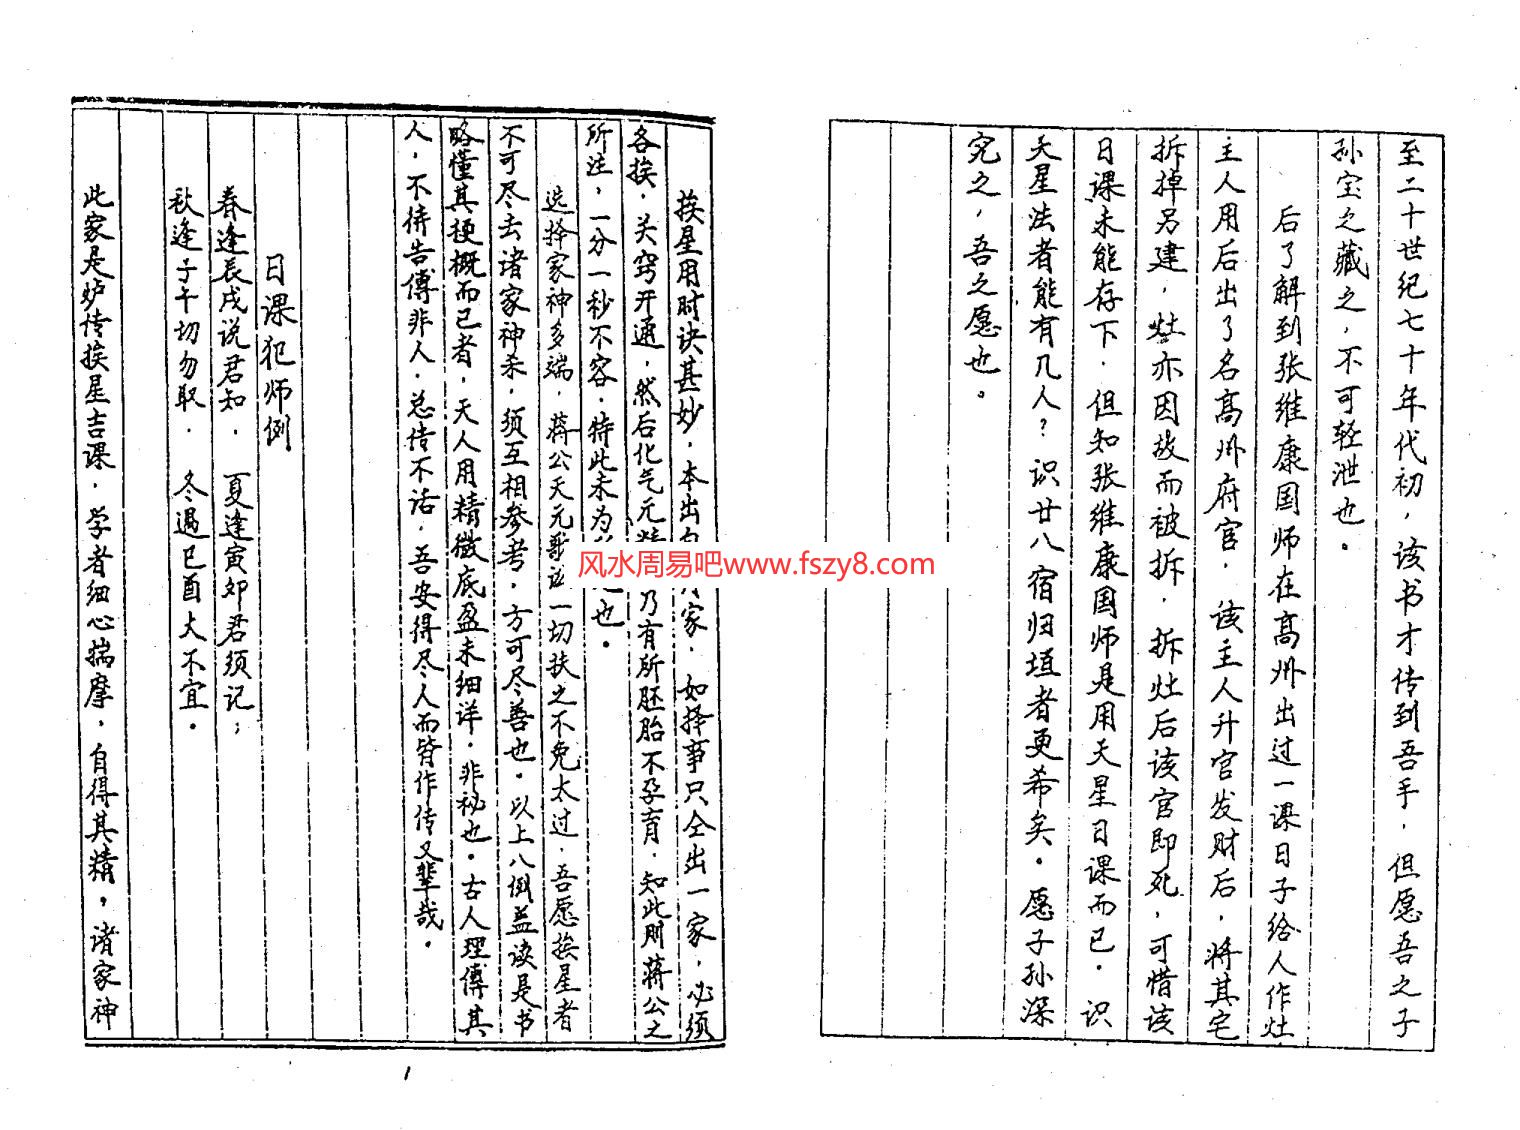 至二十世纪七十年代初，该书才传到吾手．但愿吾之子
孙宝之藏之，不可轻泄也。
后了解到张维康国师在高州出过一课日子给人作灶
主人用后出了名高州府官．该主人升官发财后，将其宅
拆掉另建，灶亦因故而被拆．拆灶后该官即死，可惜该
日课未能存下．但知张维康国师是用天星日课而已．识
天星法者能有几人？识廿八宿归垣者更希矣。愿子孙深
究之，吾之愿也。
挨星用时诀甚妙．本出 家．如择事只仝出一家，必须
各挨．关窍开通，然后化气元 乃有所胚胎不孕育．知此则蒋公之
所注，一分一秒不容．特此未为 也。
选择家神多端．蒋公天元歌 一切扶之不免太过．吾愿挨星者
不可尽去诸家神杀．须互相参考，方可尽善也．以上八倒益读是书
略懂其梗概而已者，天人用精微底盈未细详．非祕也．古人理傅其
人．不待告傅非人．总传不话．吾安得尽人而皆作传又辈哉．
日课犯师例
春逢辰戌说君知．夏逢寅卯君须记；
秋逢子午切勿取．冬遇巳酉大不宜．
此家是妒传挨星吉课．学者细心揣摩，自得其精，诸家神
1
风水周易吧www.fszy8.com